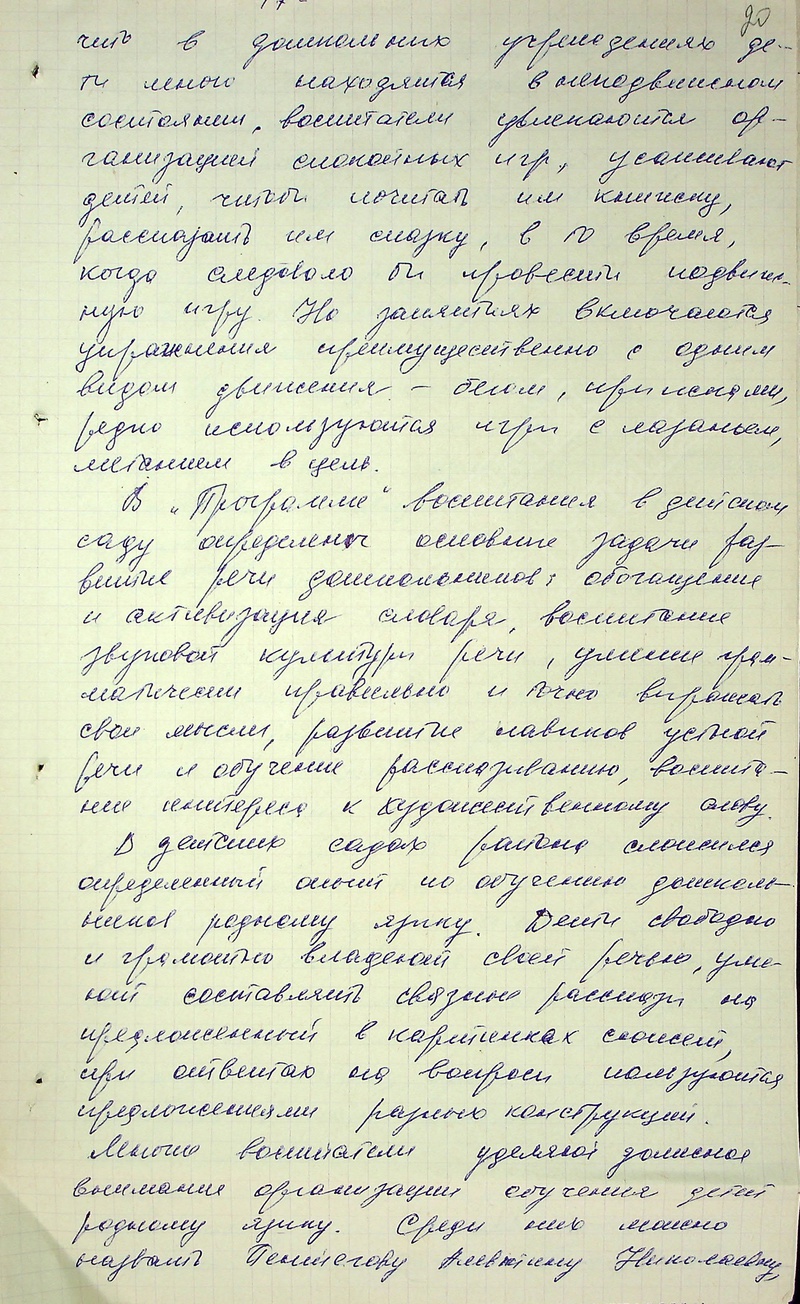 20
чить в дошкольних учреждениях де-
ти много находятся в неподвижном
состоянии, воспитатели увлекаются ор-
ганизацией спокойных игр, усаживают
детей, чтобы почитать им книжку,
рассказать им сказку, в то время,
когда следовало бы провести подвиж-
ную игру. На занятиях включаются
упражнения преимущественно с одним
видом движения – бегом, прыжками,
редко используются игры с лазаньем,
метанием в цель.
В „Программе" воспитания в детском
саду определены основные задачи раз-
вития речи дошкольников: обогащение
и активизация словаря, воспитание
звуковой культуры речи, умение грам-
матически правильно и точно выражать
свои мысли, развитие навыков устной
речи и обучение рассказыванию, воспита-
ние интереса к художественному слову.
В детских садах района сложился
определенный опыт по обучению дошколь-
ников родному языку. Дети свободно
и грамотно владеют своей речью, уме-
ют составлять связные рассказы на
предложенный в картинках сюжет,
при ответах на вопросы пользуются
предложениями разных конструкций.
Многие воспитатели уделяют должное
внимание организации обучения детей
родному языку. Среди них можно
назвать Алевтину Николаевну,